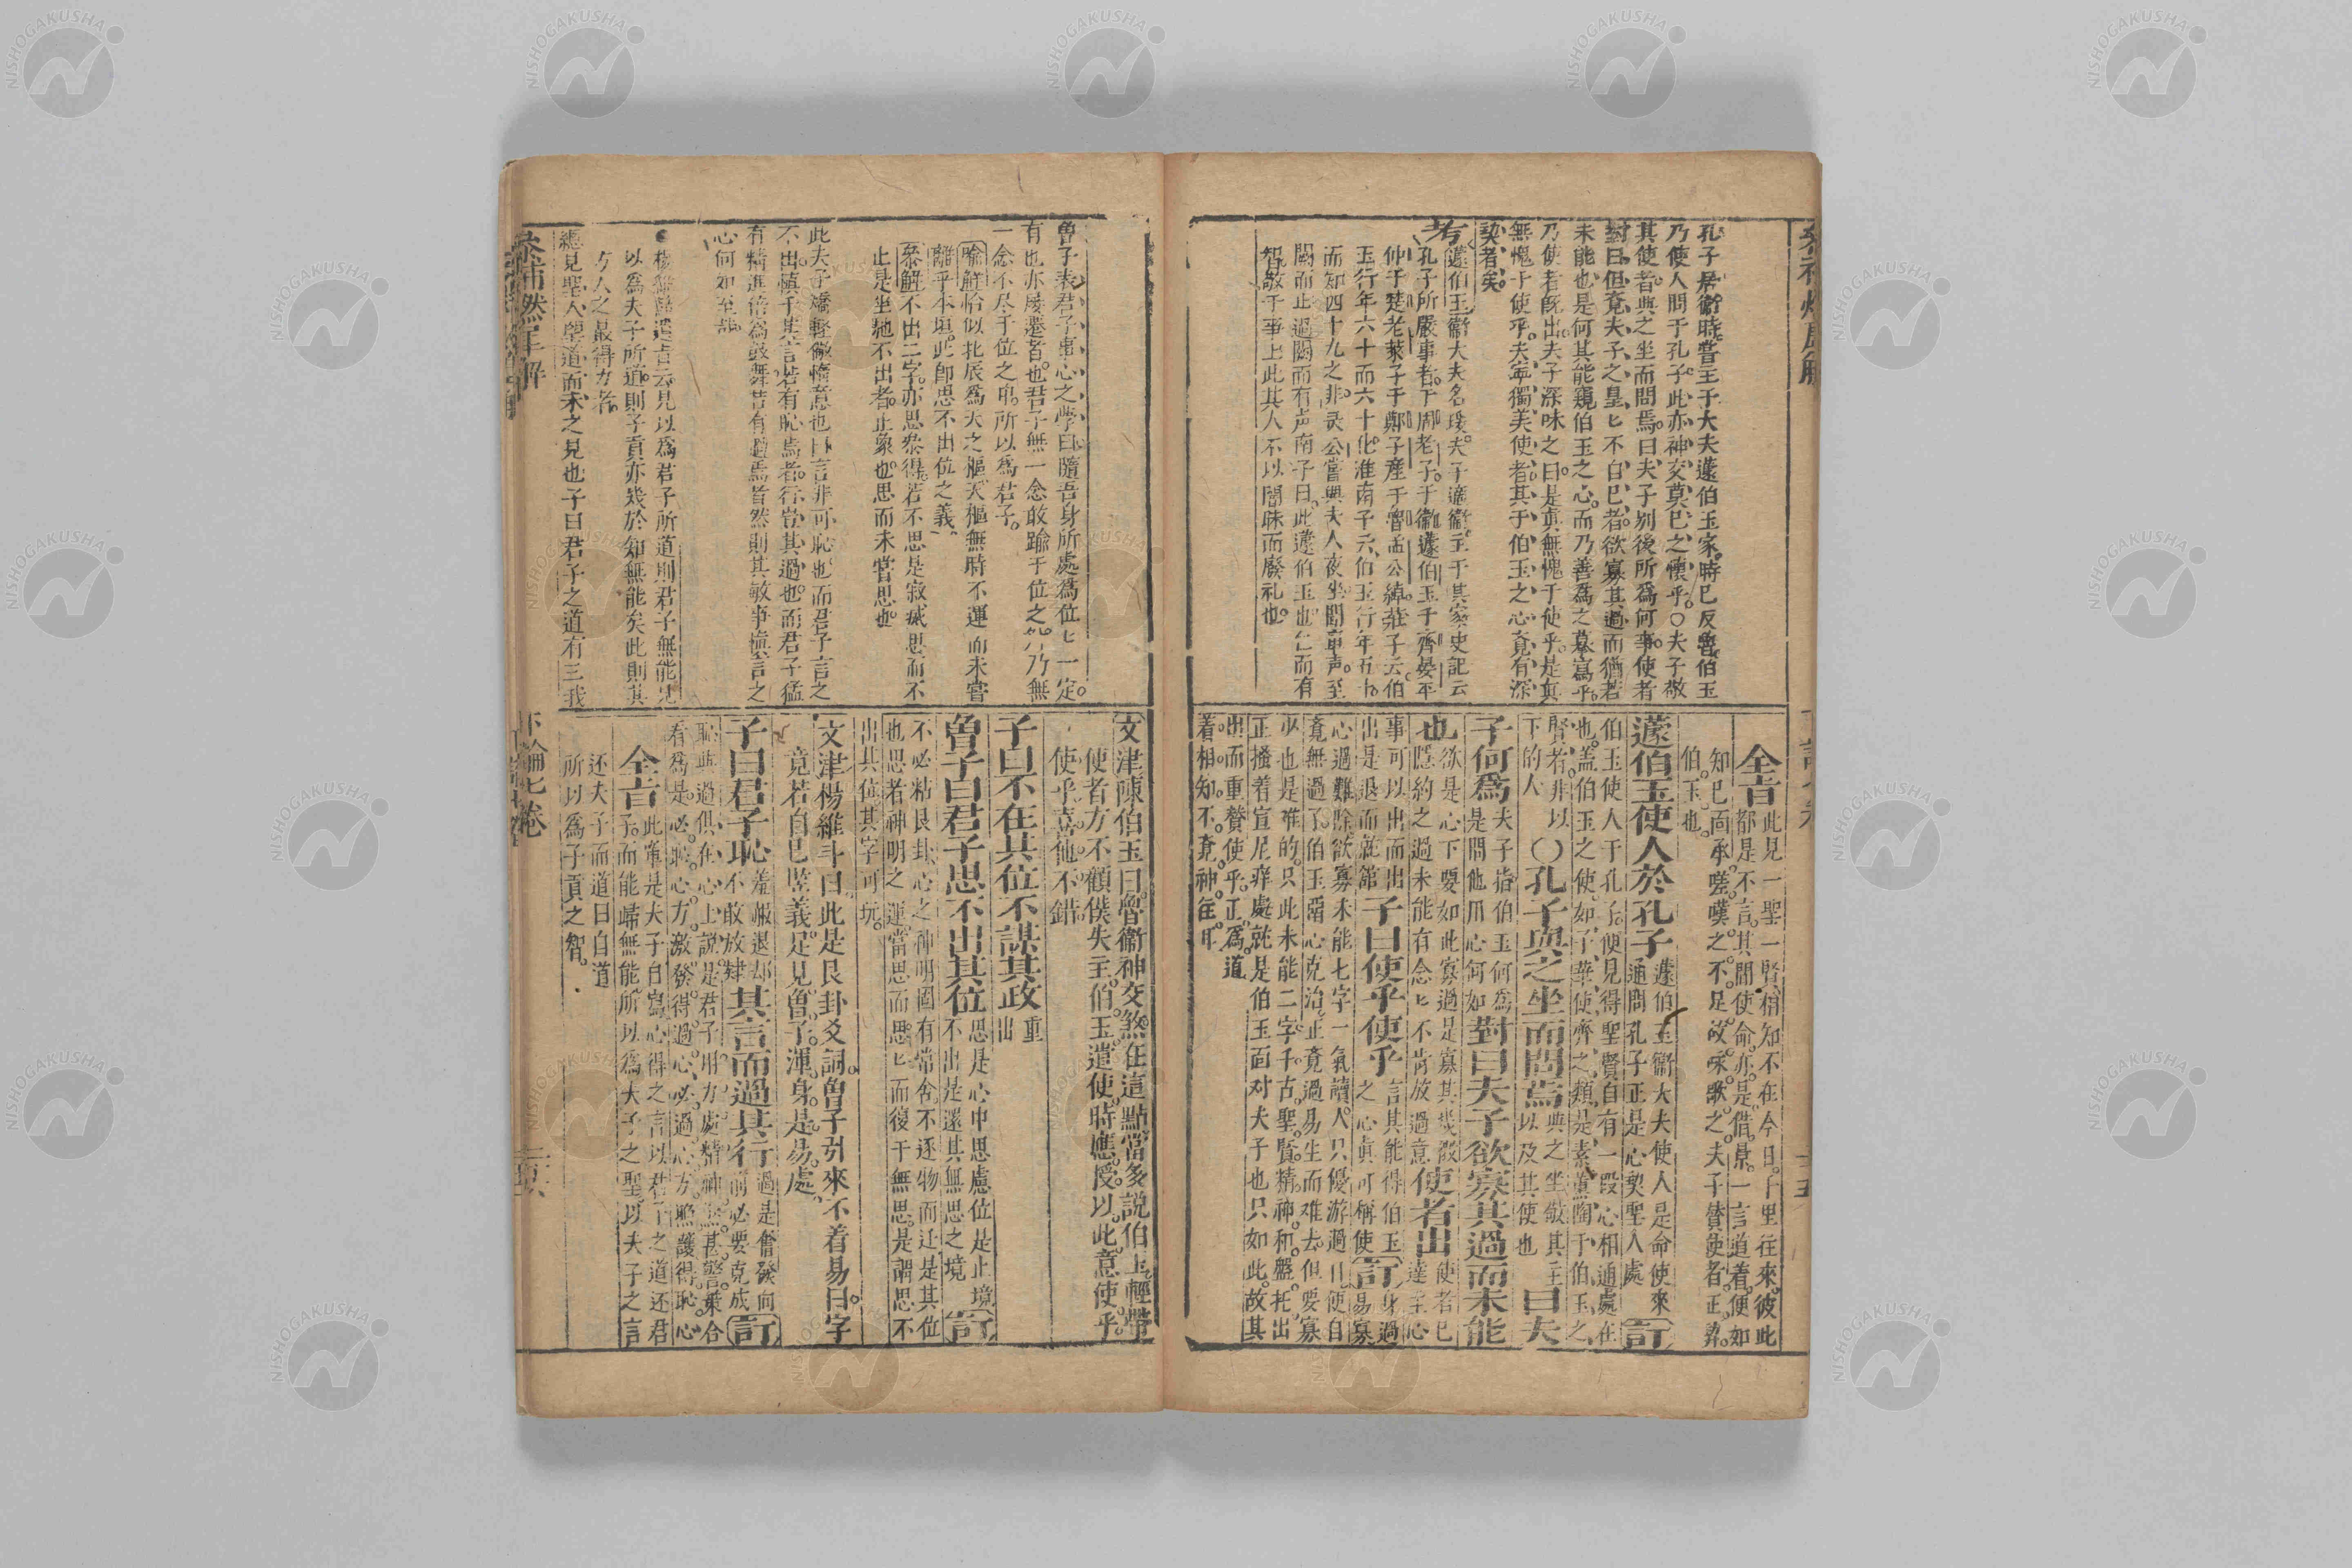 孔子居衞時甞主于大夫蘧伯玉家時巳反魯伯玉
乃使人問于孔子此亦神交莫巳之懷乎○夫子敬
其使者與之坐而問焉曰夫子别後所爲何事使者
對曰但竟夫子之皇匕不自巳者欲寡其過而猶若
未能也是何其能窺伯玉之心而乃善爲之摹寫乎
乃使者旣出夫子深味之曰是眞無愧于使乎是眞
無愧于使乎夫寧獨美使者其于伯玉之心竟有深
契者矣
考 蘧伯玉衞大夫名瑗夫子適衞主于其家史記云
孔子所嚴事者于周老子于衞蘧伯玉于齊晏平
仲于楚老萊子于鄭子產于魯孟公綽莊子云伯
玉行年六十而六十化淮南子云伯玉行年五十
而知四十九之非灵公嘗與夫人夜坐聞車声至
闕而止過闕而有声南子曰此蘧伯玉也仁而有
智敬于事上此其人不以闇昧而廢礼也
全旨 此見一聖一賢相知不在今日千里往來彼此
都是不言其間使命亦是借景一言道着便如
知巳面承嗟嘆之不足故咏歌之夫子賛使者正爲
伯玉也
蘧伯玉使人於孔子 蘧伯玉衞大夫使人是命使來
通問孔子正是心契聖人處 訂
伯玉使人于孔子便見得聖賢自有一段心相通處在
也盖伯玉之使如子華使齊之類是素薰陶于伯玉之
賢者非以
下的人 ○孔子與之坐而問焉 與之坐敬其主
以及其使也 曰夫
子何爲 夫子指伯玉何爲
是問他用心何如 對曰夫子欲寡其過而未能
也 欲是心下要如此寡過是寡其幾微
隱約之過未能有念匕不肯放過意 使者出 使者巳
達主心
事可以出而出
出是退而就舘 子曰使乎使乎 言其能得伯玉
之心眞可稱使 訂 身過
易寡
心過難除欲寡未能七字一氣讀人只優游過日便自
竟無過了伯玉喎心克治正竟過易生而难去但要寡
少也是难的只此未能二字千古聖賢精神和盤托出
正搔着宣尼痒處就是伯玉面对夫子也只如此故其
出而重賛使乎正爲道
着相知不竟神徃耳
魯子表君子事心之學曰隨吾身所處爲位匕一定
有也亦陵躐者也君子無一念敢踰于位之外乃無
一念不尽于位之中所以爲君子
喻解 恰似北辰爲天之樞天樞無時不運而未嘗
離乎本垣此卽思不出位之義
叅解 不出二字亦思叅得若不思是寂滅思而不
止是坐馳不出者止象也思而未嘗思也
此夫子矯輕儆惰意也曰言非可恥也而君子言之
不出愼于其言若有恥焉者行豈其過也而君子猛
有精進倍爲鼓舞若有過焉者然則其敏事愼言之
心何如至哉
楊維節遺言云見以爲君子所道則君子無能見
以爲夫子所道則子貢亦幾於知無能矣此則其
方人之最得力者
總見聖人望道而未之見也子曰君子之道有三我
文津陳伯玉曰魯衞神交煞在這點當多說伯玉輕帶
使者方不顧僕失主伯玉遣使時應授以此意使乎
使乎喜他不錯
子曰不在其位不謀其政 重
出
魯子曰君子思不出其位 思是心中思慮位是止境
不出是還其無思之境 訂
不必粘艮卦心之神明固有常舍不逐物而迁是其位
也思者神明之運當思而思匕而復于無思是謂思不
出其位其字可玩
文津楊維斗曰此是艮卦爻詞魯子引來不着易曰字
竟若自巳竪義足見魯子渾身是易處
子曰君子恥 羞㥏退却
不敢放肆 其言而過其行 過是奮發向
前必要克成 訂
恥與過俱在心上說是君子用力處精神然甚警策合
看爲是必恥心方激發得過心必過心方照護得恥心
全旨 此章是夫子自寫心得之言以君子之道还君
子而能歸無能所以爲夫子之聖以夫子之言
还夫子而道曰自道
所以爲子貢之智